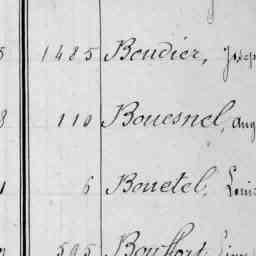 5 1485 Boudier, Josep
8 110 Bouesnel, aug
1 6 Bouetel, Louis
595 Bouffort,